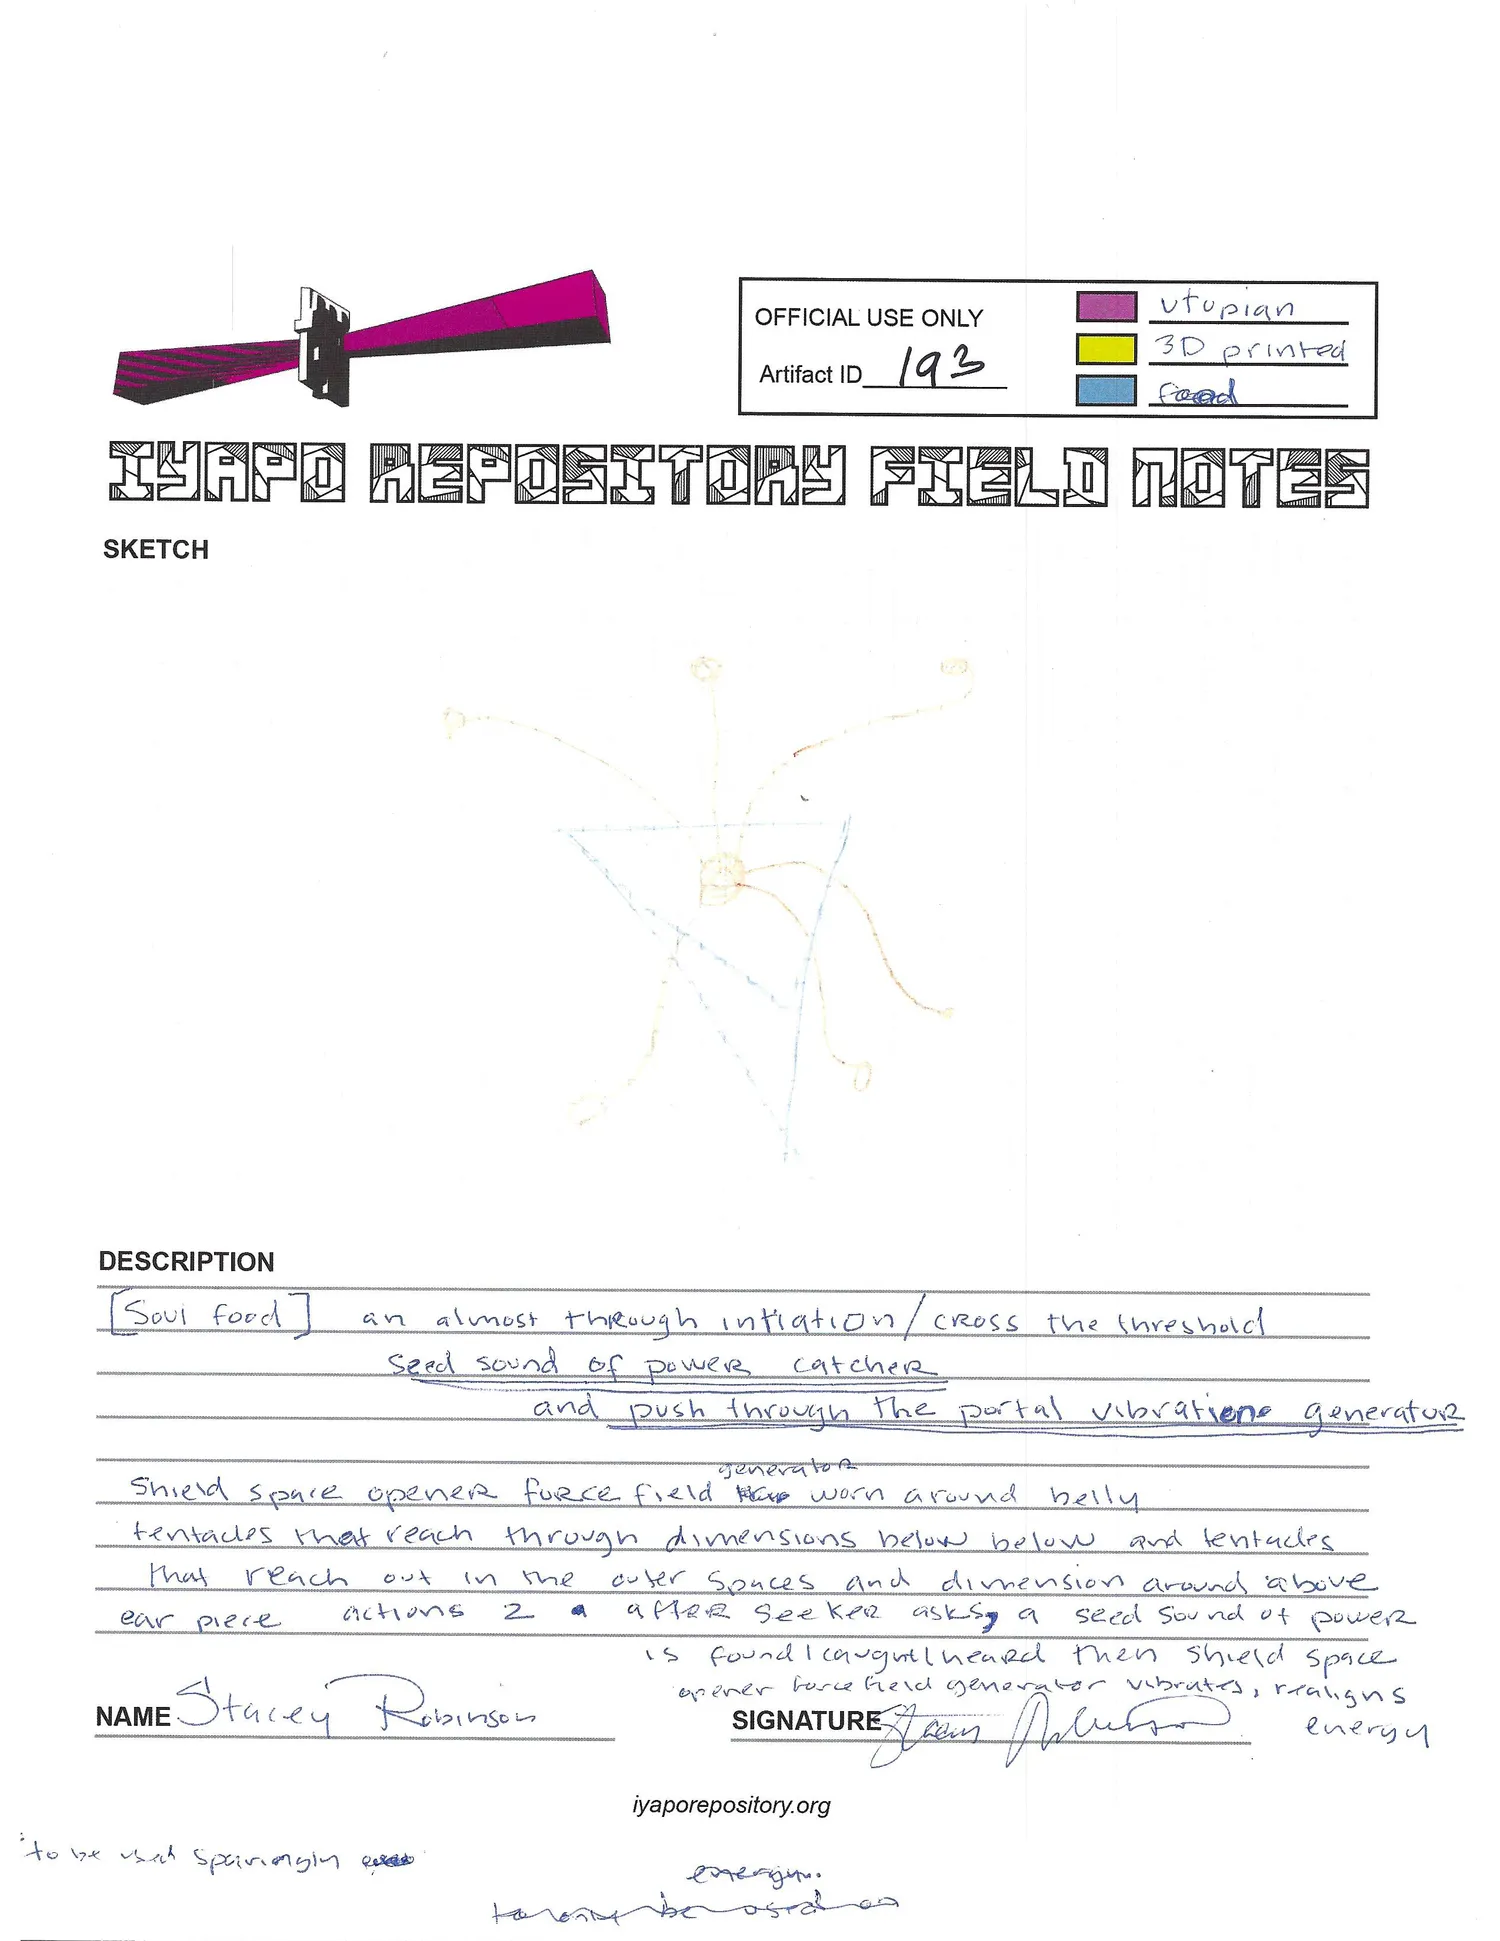 OFFICIAL USE ONLY
Artifact ID 193
utupian
3D printed
food
IYAPO REPOSITORY FIELD NOTES
SKETCH
DESCRIPTION
[Soul food] an almost through intiation/cross the threshold
seed sound of power catcher
and push through the portal vibrations generator
generator
Shield space opener force field worn around belly
tentacles that reach through dimensions below below and tentacles
that reach out in the outer spaces and dimension around above
ear piece actions 2 a after seeker asks, a seed sound of power
is found/caught/heard then shield space
opener force field generator vibrates, realigns
energy
NAME Stacey Robinson
SIGNATURE Stacey Robinson
iyaporepository.org
to be used sparingly
energy.
to only be used on